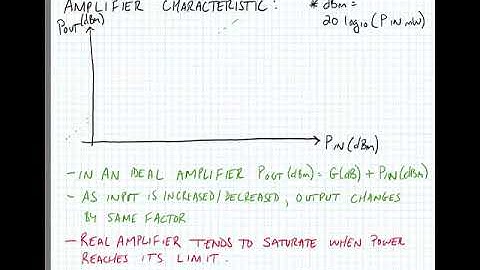 AMPLIFIER CHARACTERISTIC:
* dBm =
20 log10 (P IN mW)
POUT (dBm)
PIN (dBm)
- IN AN IDEAL AMPLIFIER POUT (dBm) = G(dB) + PIN (dBm)
- AS INPUT IS INCREASED/DECREASED, OUTPUT CHANGES
BY SAME FACTOR
- REAL AMPLIFIER TENDS TO SATURATE WHEN POWER
REACHES ITS LIMIT.